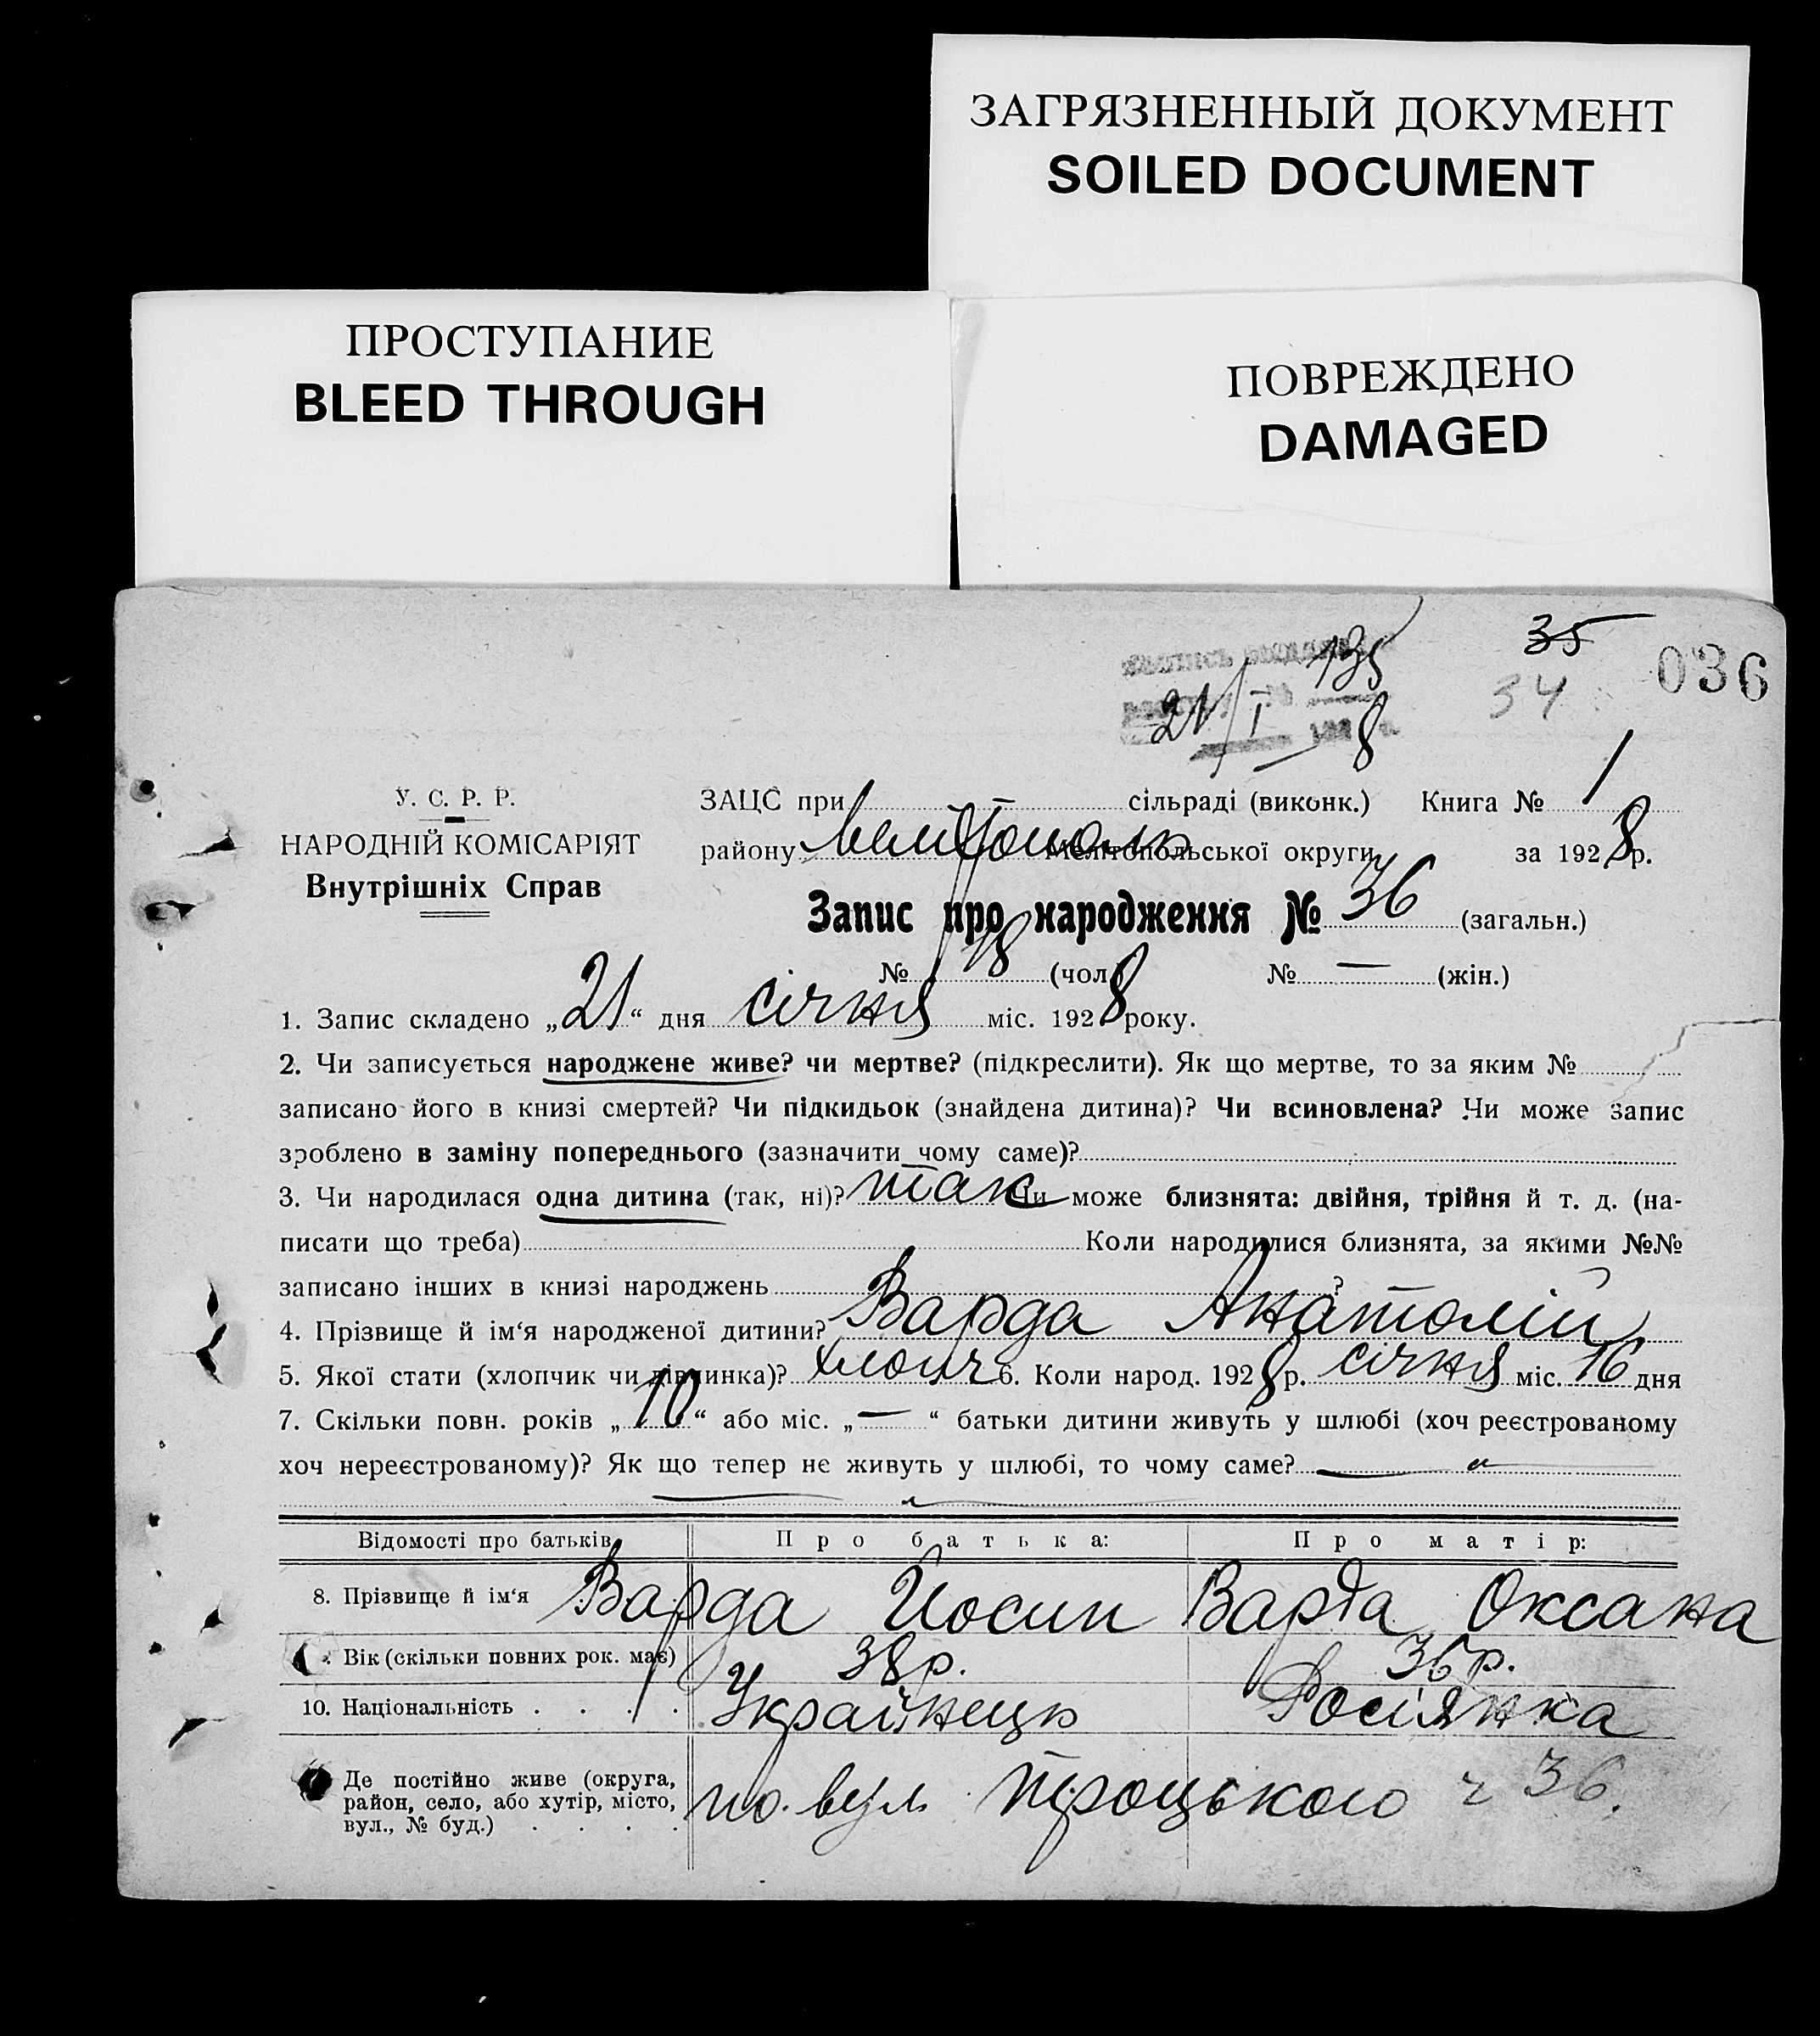 ЗАГРЯЗНЕННЫЙ ДОКУМЕНТ
SOILED DOCUMENT
ПРОСТУПАНИЕ
BLEED THROUGH
ПОВРЕЖДЕНО
DAMAGED
135
35
036
34
21/I 8
У. С. Р. Р.
НАРОДНІЙ КОМІСАРІЯТ
Внутрішніх Справ
ЗАЦС при сільраді (виконк.) Книга № 1
району Мелітополь Мелітопольської округи за 1928 р.
Запис про народження № 36 (загальн.)
№ 18 (чол.) № — (жін.)
1. Запис складено „21“ дня січня міс. 1928 року.
2. Чи записується народжене живе? чи мертве? (підкреслити). Як що мертве, то за яким №
записано його в книзі смертей? Чи підкидьок (знайдена дитина)? Чи всиновлена? Чи може запис
зроблено в заміну попереднього (зазначити чому саме)?
3. Чи народилася одна дитина (так, ні)? так Чи може близнята: двійня, трійня й т. д. (на-
писати що треба) Коли народилися близнята, за якими №№
записано інших в книзі народжень ?
4. Прізвище й ім‘я народженої дитини? Варда Анатолій
5. Якої стати (хлопчик чи дівчинка)? хлопч 6. Коли народ. 1928 р. січня міс. 16 дня
7. Скільки повн. років „10“ або міс. „—“ батьки дитини живуть у шлюбі (хоч реєстрованому
хоч нереєстрованому)? Як що тепер не живуть у шлюбі, то чому саме? — „ —
Відомості про батьків Про батька: Про матір:
8. Прізвище й ім‘я Варда Йосип Варда Оксана
Вік (скільки повних рок. має) 38 р. 36 р.
10. Національність . . . . Українець Росіянка
Де постійно живе (округа,
район, село, або хутір, місто,
вул., № буд.) . . . . по вул. Троцького ч 36.